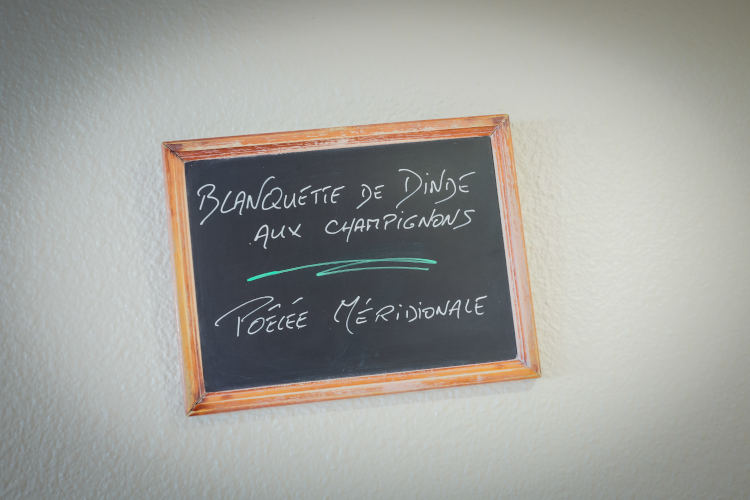 BLANQUETTE DE DINDE
AUX CHAMPIGNONS
POÊLÉE MÉRIDIONALE